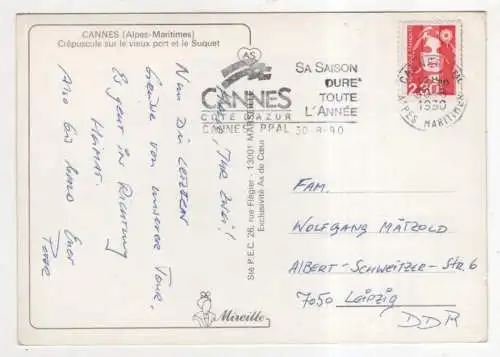 CANNES (Alpes-Maritimes)
Crépuscule sur le vieux port et le Suquet
Hallo, Ihr zwei!
Nun die letzten
Grüße von unserer Tour,
Es geht in Richtung
Heimat.
Also bis bald Euer
Peter
Sté P.E.C. 26, rue Flégier - 13001 MARSEILLE
Exclusivité As de Cœur
Mireille
AS
CANNES
CÔTE D'AZUR
CANNES PPAL 30-8-90
SA SAISON
DURE
TOUTE
L'ANNÉE
2,30
1990
ALPES MARITIMES
FAM.
WOLFGANG MÄTZOLD
ALBERT-SCHWEITZER-STR. 6
7050 Leipzig
DDR